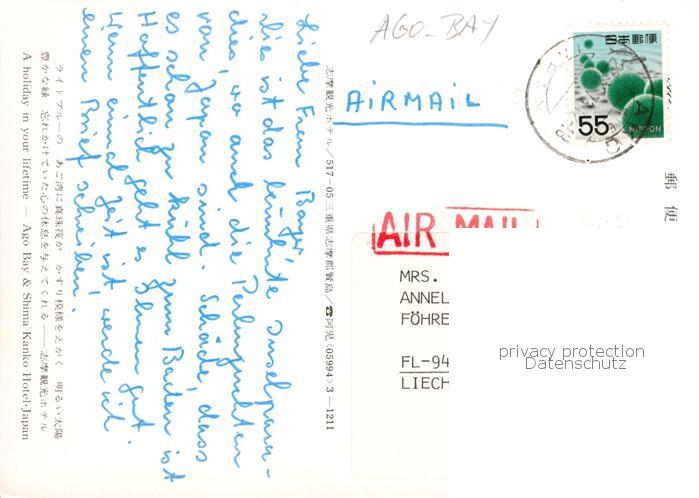 Liebe Frau Bayer,
dies ist das berühmte Inselpara-
dies, wo auch die Perlzuchten
von Japan sind. Schade, dass
es schon zu kühl zum Baden ist
Hoffentlich geht es Ihnen gut
Wenn einmal Zeit ist werde ich
einen Brief schreiben.
ライトブルーの あご湾に真珠筏が かすり模様をえがく 明るい太陽
豊かな緑 忘れかけていた心の休息を与えてくれる——志摩観光ホテル
A holiday in your lifetime — Ago Bay & Shima Kanko Hotel·Japan
志摩観光ホテル/517-05三重県志摩郡賢島/☎阿児〈05994〉3—1211
AGO-BAY
AIRMAIL
日本郵便
55
NIPPON
郵便
AIR MAIL
MRS.
ANNEL
FÖHRE
FL-94
LIECH
privacy protection
Datenschutz